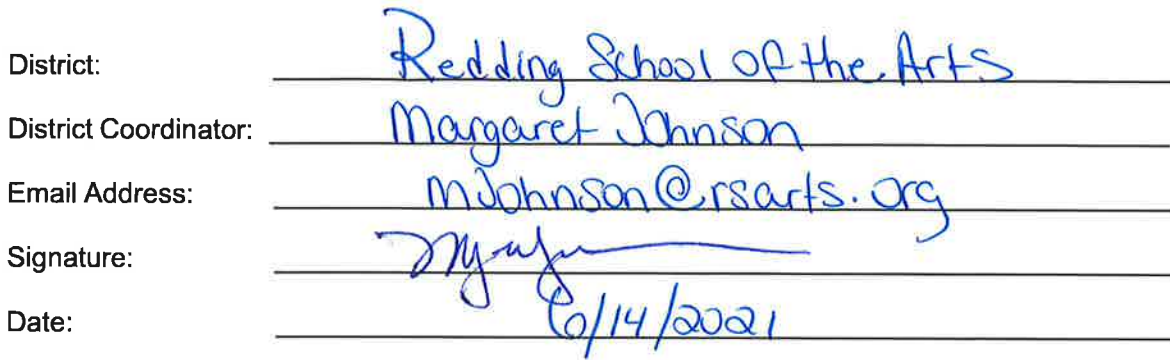 District: Redding School of the Arts
District Coordinator: Margaret Johnson
Email Address: mJohnson@rsarts.org
Signature:
Date: 6/14/2021